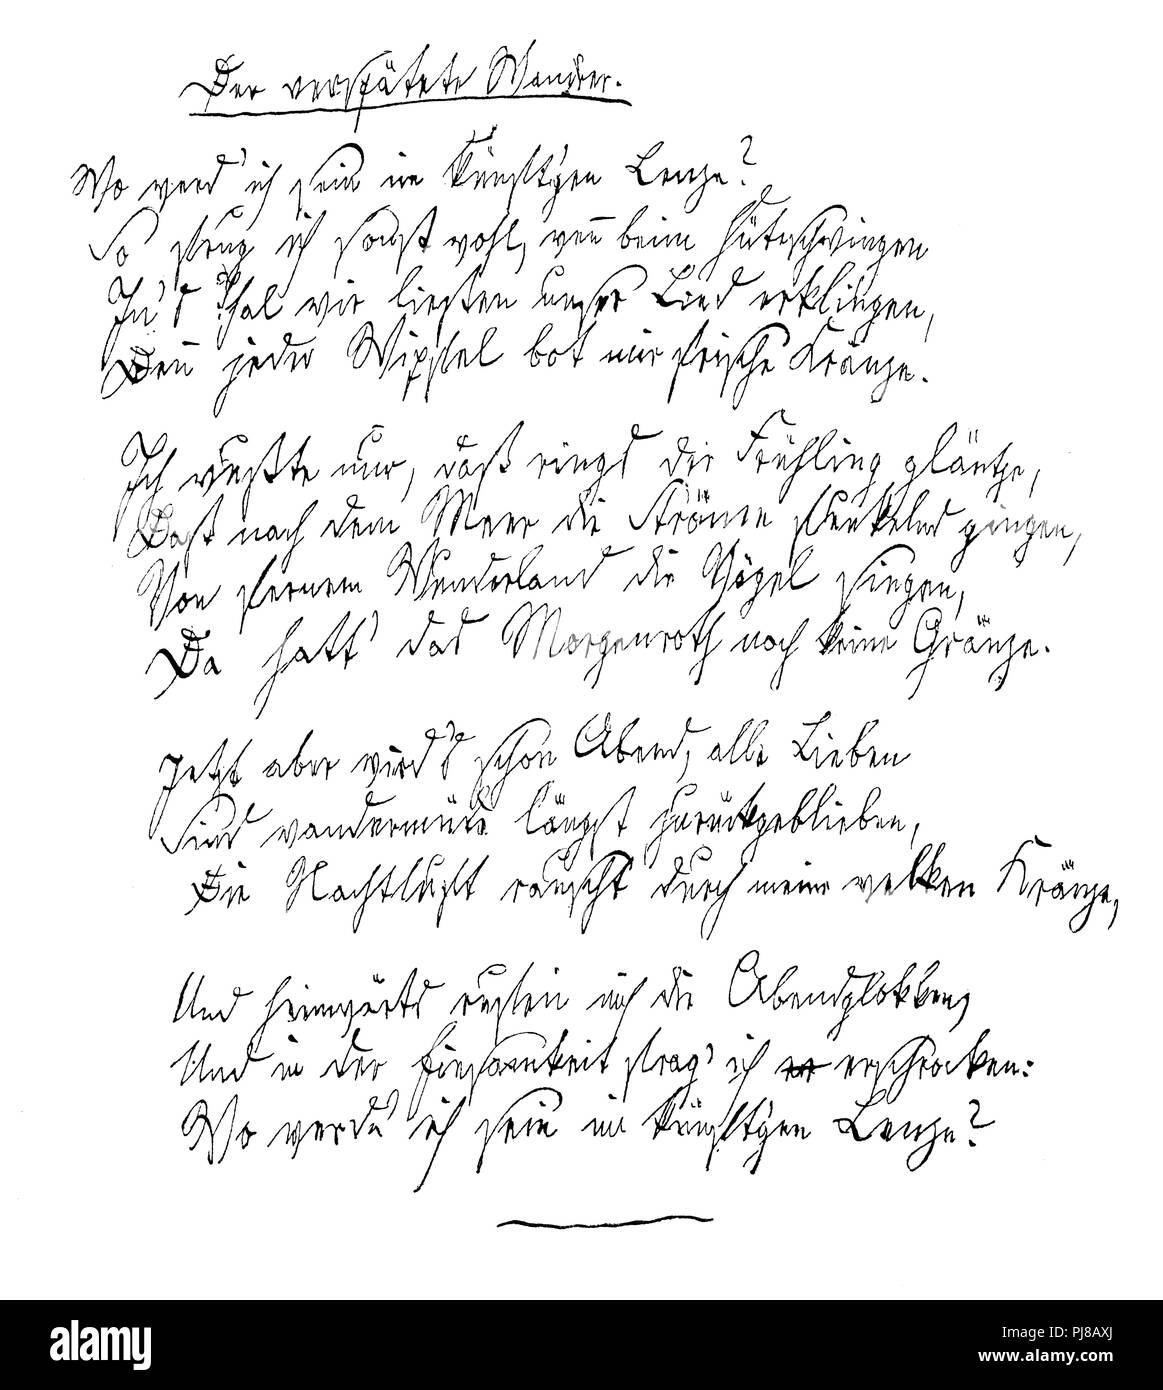 Der verspätete Wandrer.
Wo werd' ich sein im künft'gen Lenze?
So frug ich sonst wohl, weñ beim Hüteschwingen
In's Thal wir ließen unser Lied erklingen,
Deñ jeder Wipfel bot mir frische Kränze.
Ich wußte nur, daß rings der Frühling glänze,
Daß nach dem Meer die Ströme funkelnd gingen,
Von fernem Wunderland die Vögel singen,
Da hatt' das Morgenroth noch keine Gränze.
Jetzt aber wird's schon Abend, alle Lieben
Sind wandermüde längst zurückgeblieben,
Die Nachtluft rauscht durch meine welken Kränze,
Und heimwärts rufen mich die Abendglokken,
Und in der Einsamkeit frag' ich erschrocken:
Wo werde ich sein im künft'gen Lenze?
alamy
alamy
Image ID: PJ8AXJ
www.alamy.com